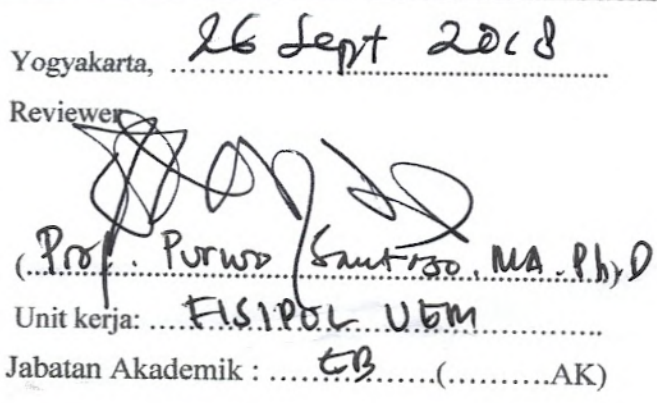 Yogyakarta, 26 Sept 2018
Reviewer
(Prof. Purwo Santoso, MA. Ph.D)
Unit kerja: FISIPOL UGM
Jabatan Akademik : ....GB.......(..........AK)